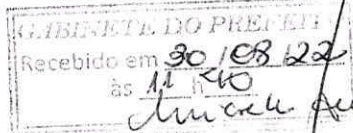 GABINETE DO PREFEIT
Recebido em 30/08/22
às 11 h 40